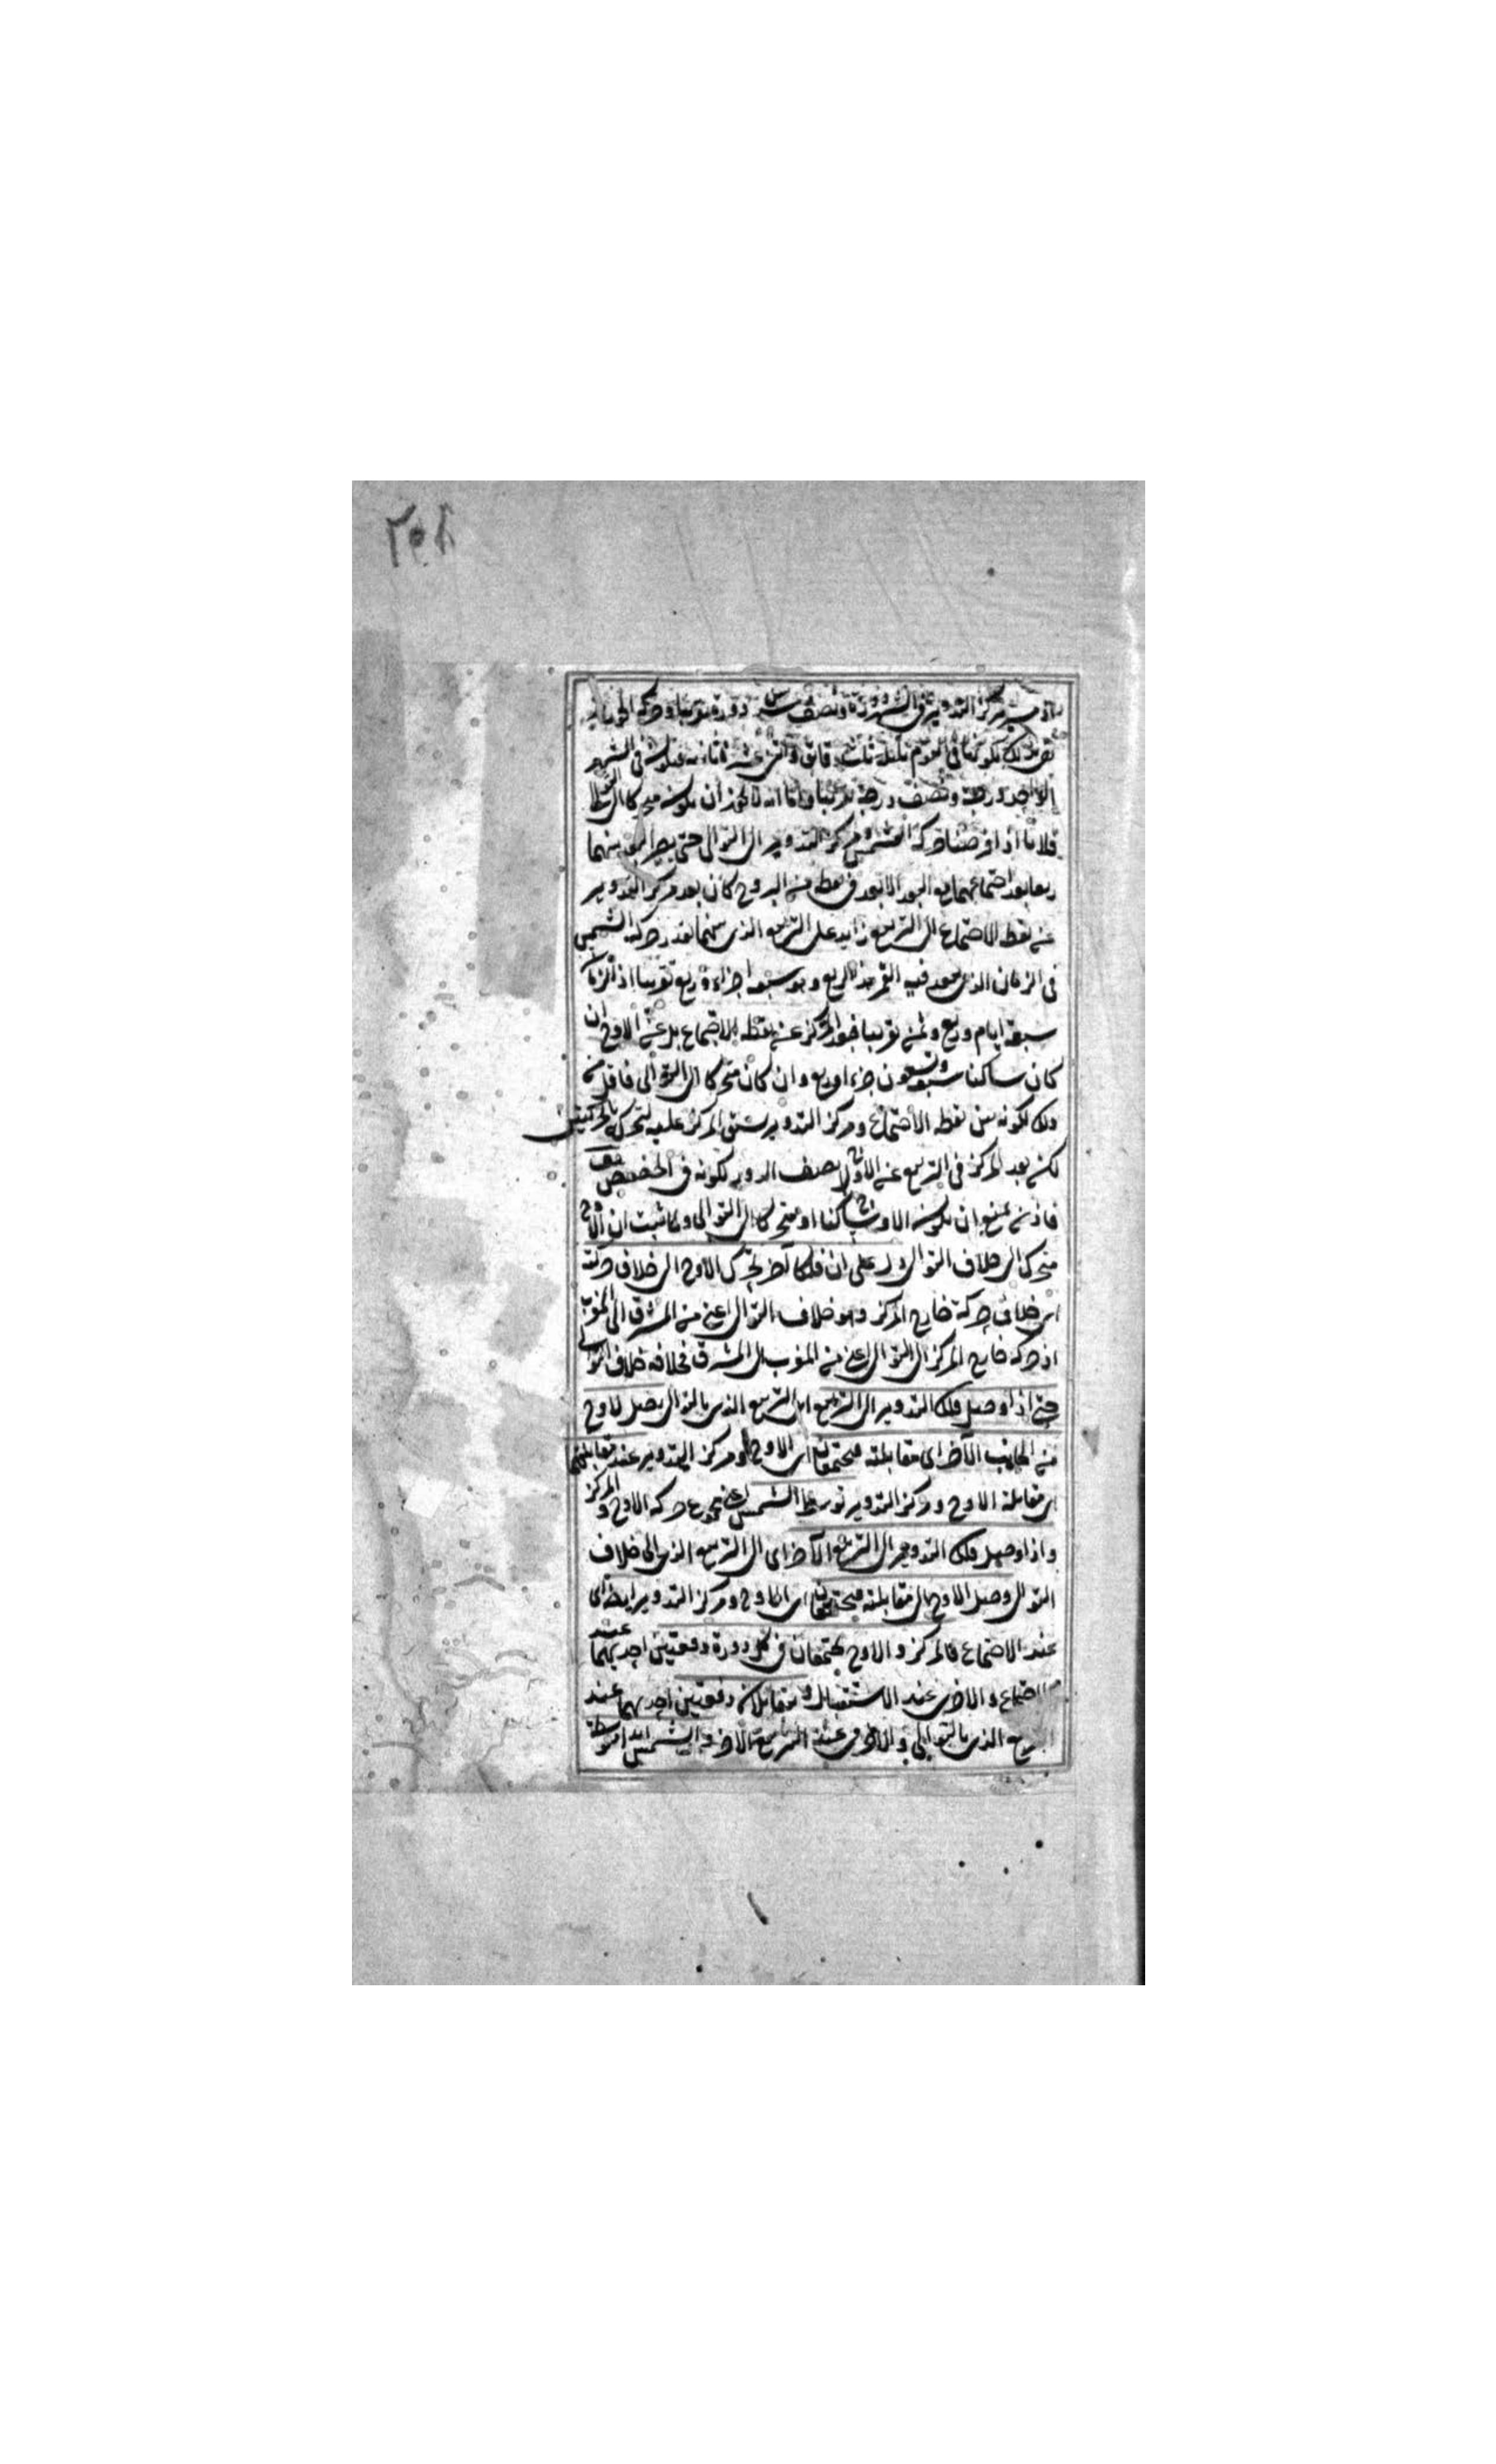 اذ مسير مركز التدوير في الشهر دورة ونصف سدس دورة تقريبا وحركة الجوزهر
بقدر ذلك لكونها في اليوم بليلته ثلث دقائق واثنى عشر ثانية فيكون في الشهر
الواحد درجة ونصف درجة تقريبا واما انه لا يجوز ان يكون متحركا الى التوالى
فلانا اذا فرضنا حركة الشمس ومركز التدوير الى التوالى حتى يصير البعد بينهما
ربعا بعد اجتماعهما في البعد الابعد في نقطة من البروج كان بعد مركز التدوير
عن نقطة الاجتماع الى التربيع زايد على التربيع الذى بينهما بقدر حركة الشمس
فى الزمان الذى يبعد فيه القمر هذا الربع وهو سبعة اجزاء وربع تقريبا اذ الزمان
سبعة ايام وربع وثمن تقريبا فبعد المركز عن نقطة الاجتماع بل عن الاوج ان
كان ساكنا سبعة وتسعون جزءا وربع وان كان متحركا الى التوالى فاقل من
ذلك لكونه بين نقطة الاجتماع ومركز التدوير لسبق المركز عليه لتحركه بالحركتين
لكن بعد المركز فى التربيع عن الاوج نصف الدور لكونه فى الحضيض
فاذن يمتنع ان يكون الاوج ساكنا او متحركا الى التوالى ولما ثبت ان الاوج
متحرك الى خلاف التوالى دل على ان فلكا آخر يحرك الاوج الى خلاف حركته
اى خلاف حركة خارج المركز وهو خلاف التوالى اعنى من المشرق الى المغرب
اذ حركة خارج المركز الى التوالى اعنى من المغرب الى المشرق فخلافه خلاف التوالى
حتى اذا وصل فلك التدوير الى التربيع اى التربيع الذى بالتوالى يصل الاوج
من الجانب الآخر اى مقابلته فيجتمعان اى الاوج ومركز التدوير عند مقابلتهما
اى مقابلة الاوج ومركز التدوير توسط الشمس اعنى مجموع حركة الاوج والمركز
واذا وصل فلك التدوير الى التربيع الآخر اى الى التربيع الذى الى خلاف
التوالى وصل الاوج الى مقابلته فيجتمعان اى الاوج ومركز التدوير ايضا اى
عند الاجتماع فالمركز والاوج يجتمعان فى كل دورة دفعتين احديهما عند
الاجتماع والاخرى عند الاستقبال ويتقابلان دفعتين احديهما عند
التربيع الذى بالتوالى والاخرى عند التربيع الآخر والشمس ابدا متوسطة